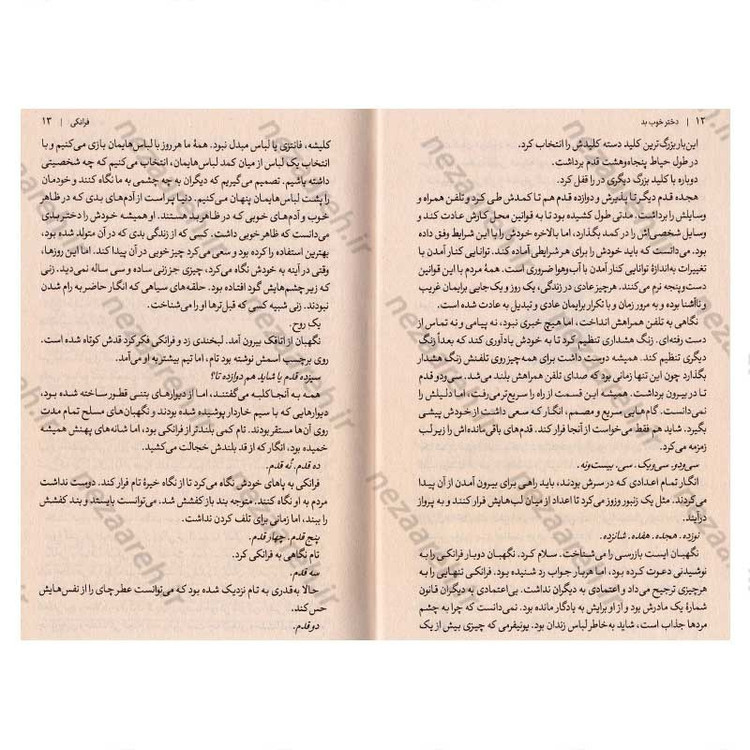 ۱۲ | دختر خوب بد
این‌بار بزرگ‌ترین کلید دسته کلیدش را انتخاب کرد.
در طول حیاط پنجاه‌وهشت قدم برداشت.
دوباره با کلید بزرگ دیگری در را قفل کرد.
هجده قدم دیگر تا پذیرش و دوازده قدم هم تا کمدش طی کرد و تلفن همراه و
وسایلش را برداشت. مدتی طول کشیده بود تا به قوانین محل کارش عادت کند و
وسایل شخصی‌اش را در کمد بگذارد، اما بالاخره خودش را با این شرایط وفق داده
بود. می‌دانست که باید خودش را برای هر شرایطی آماده کند. توانایی کنار آمدن با
تغییرات به‌اندازهٔ توانایی کنار آمدن با آب‌وهوا ضروری است. همهٔ مردم با این قوانین
دست‌وپنجه نرم می‌کنند. هرچیز عادی در زندگی، یک روز و یک‌جایی برایمان غریب
و ناآشنا بوده و به مرور زمان و با تکرار برایمان عادی و تبدیل به عادت شده است.
نگاهی به تلفن همراهش انداخت، اما هیچ خبری نبود، نه پیامی و نه تماس از
دست رفته‌ای. زنگ هشداری تنظیم کرد تا به خودش یادآوری کند که بعداً زنگ
دیگری تنظیم کند. همیشه دوست داشت برای همه‌چیز روی تلفنش زنگ هشدار
بگذارد چون این تنها زمانی بود که صدای تلفن همراهش بلند می‌شد. سی‌ودو قدم
تا در بیرون برداشت. همیشه این قسمت از راه را سریع‌تر می‌رفت، اما دلیلش را
نمی‌دانست. گام‌هایی سریع و مصمم، انگار که سعی داشت از خودش پیشی
بگیرد. شاید هم فقط می‌خواست از آنجا فرار کند. قدم‌های باقی‌مانده‌اش را زیر لب
زمزمه می‌کرد.
سی‌ودو. سی‌ویک. سی. بیست‌ونه.
انگار تمام اعدادی که در سرش بودند، باید راهی برای بیرون آمدن از آن پیدا
می‌کردند. مثل یک زنبور وزوز می‌کرد تا اعداد از میان لب‌هایش فرار کنند و به پرواز
درآیند.
نوزده. هجده. هفده. شانزده.
نگهبان ایست بازرسی را می‌شناخت. سلام کرد. نگهبان دوبار فرانکی را به
نوشیدنی دعوت کرده بود، اما هربار جواب رد شنیده بود. فرانکی تنهایی را به
هرچیزی ترجیح می‌داد و اعتمادی به دیگران نداشت. بی‌اعتمادی به دیگران قانون
شمارهٔ یک مادرش بود و از او برایش به یادگار مانده بود. نمی‌دانست که چرا به چشم
مردها جذاب است، شاید به‌خاطر لباس زندان بود. یونیفرمی که چیزی بیش از یک
فرانکی | ۱۳
کلیشه، فانتزی یا لباس مبدل نبود. همهٔ ما هر روز با لباس‌هایمان بازی می‌کنیم و با
انتخاب یک لباس از میان کمد لباس‌هایمان، انتخاب می‌کنیم که چه شخصیتی
داشته باشیم. تصمیم می‌گیریم که دیگران به چه چشمی به ما نگاه کنند و خودمان
را پشت لباس‌هایمان پنهان می‌کنیم. دنیا پر است از آدم‌های بدی که در ظاهر
خوب و آدم‌های خوبی که در ظاهر بد هستند. او همیشه خودش را دختر بدی
می‌دانست که ظاهر خوبی داشت. کسی که از زندگی بدی که در آن متولد شده بود،
بهترین استفاده را کرده بود و سعی می‌کرد چیز خوبی در آن پیدا کند. اما این روزها،
وقتی در آینه به خودش نگاه می‌کرد، چیزی جز زنی ساده و سی ساله نمی‌دید. زنی
که زیر چشم‌هایش گود افتاده بود. حلقه‌های سیاهی که انگار حاضر به رام شدن
نبودند. زنی شبیه کسی که قبل‌ترها او را می‌شناخت.
یک روح.
نگهبان از اتاقک بیرون آمد. لبخندی زد و فرانکی فکر کرد قدش کوتاه شده است.
روی برچسب اسمش نوشته بود تام، اما تیم بیشتر به او می‌آمد.
سیزده قدم یا شاید هم دوازده تا؟
همه به آنجا کلبه می‌گفتند، اما از دیوارهای بتنی قطور ساخته شده بود،
دیوارهایی که با سیم خاردار پوشیده شده بودند و نگهبان‌های مسلح تمام مدت
روی آن‌ها مستقر بودند. تام کمی بلندتر از فرانکی بود، اما شانه‌های پهنش همیشه
خمیده بود، انگار که از قد بلندش خجالت می‌کشید.
ده قدم. نُه قدم.
فرانکی به پاهای خودش نگاه می‌کرد تا از نگاه خیرهٔ تام فرار کند. دوست نداشت
مردم به او نگاه کنند. متوجه بند باز کفشش شد. می‌توانست بایستد و بند کفشش
را ببندد، اما زمانی برای تلف کردن نداشت.
پنج قدم. چهار قدم.
تام نگاهی به فرانکی کرد.
سه قدم.
حالا به‌قدری به تام نزدیک شده بود که می‌توانست عطر چای را از نفس‌هایش
حس کند.
دو قدم.
nezaareh.ir